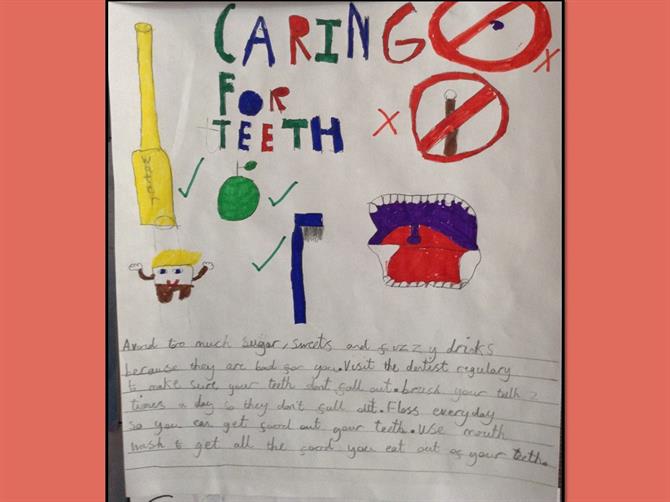 CARING
FOR
TEETH
Avoid too much sugar, sweets and fizzy drinks
because they are bad for you. Visit the dentist regulary
to make sure your teeth dont fall out. brush your teeth 2
times a day so they don't fall out. Floss everyday
so you can get food out your teeth. Use mouth
wash to get all the food you eat out of your teeth.